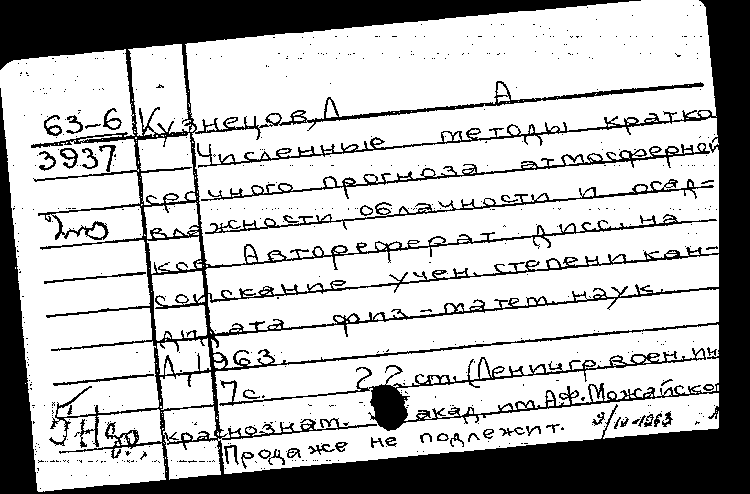 А
63-6 Кузнецов, Л
3937 Численные методы кратко
срочного прогноза атмосферной
влажности, облачности и осад=
ков Автореферат дисс. на
соискание учен. степени кан-
дидата физ-матем. наук.
Л, 1963.
7с. 22 ст. (Ленингр. воен. ин
краснознам. акад. им. А.Ф. Можайско
Продаже не подлежит. 1963